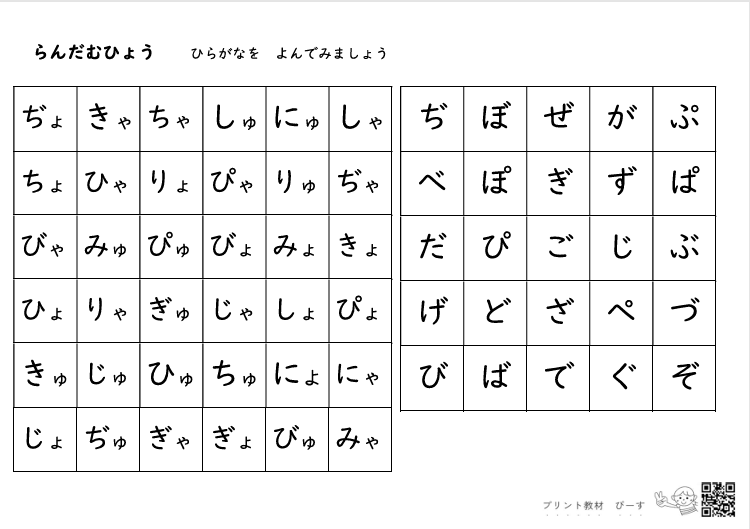 らんだむひょう　　ひらがなを　よんでみましょう
ぢょ きゃ ちゃ しゅ にゅ しゃ
ちょ ひゃ りょ ぴゃ りゅ ぢゃ
びゃ みゅ ぴゅ びょ みょ きょ
ひょ りゃ ぎゅ じゃ しょ ぴょ
きゅ じゅ ひゅ ちゅ によ にゃ
じょ ぢゅ ぎゃ ぎょ びゅ みゃ
ぢ ぼ ぜ が ぷ
べ ぽ ぎ ず ぱ
だ ぴ ご じ ぶ
げ ど ざ ぺ づ
び ば で ぐ ぞ
プリント教材　ぴーす